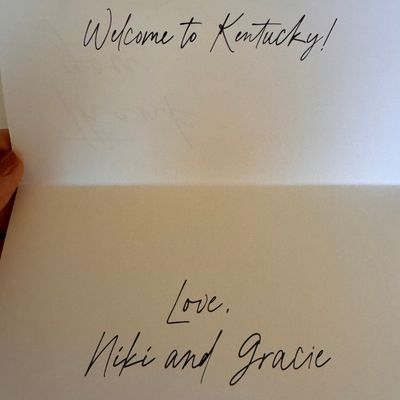 Welcome to Kentucky!
Love,
Niki and Gracie